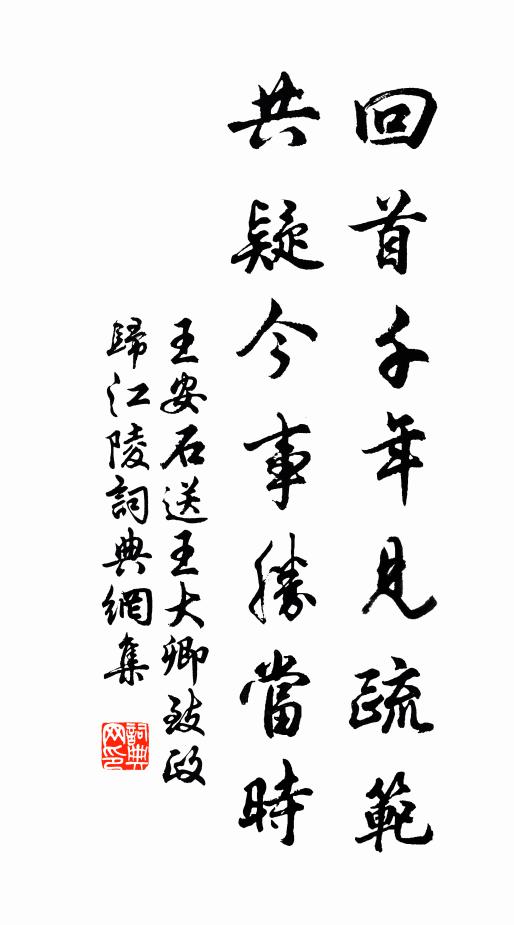 回首千年見疏範
共疑今事勝當時
王安石送王大卿致政
歸江陵詞典網集
詞典網印